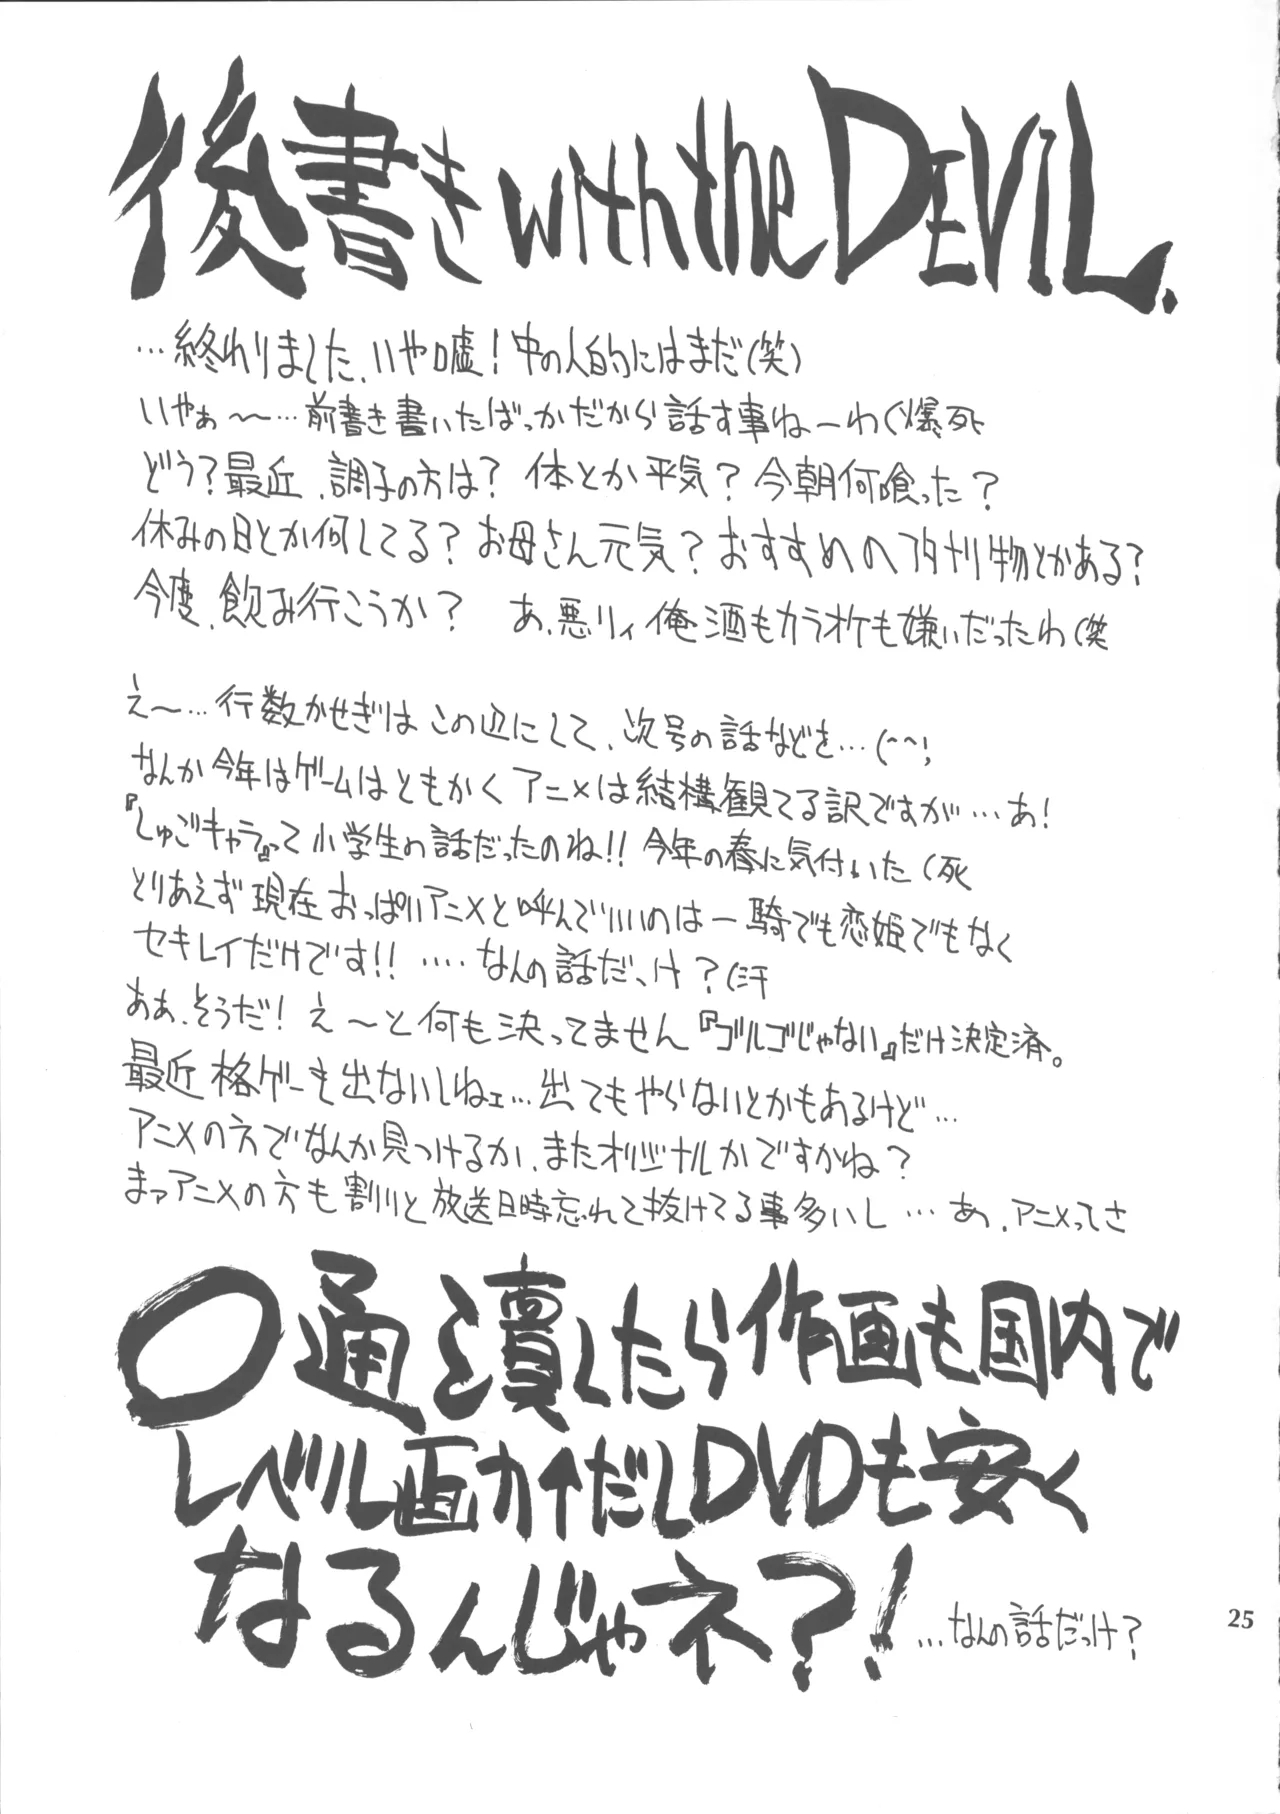 後書き with the DEViL.
…終わりました、いや嘘!中の人的にはまだ(笑)
いやぁ〜〜…前書き書いたばっかだから話す事ねーわ(爆死
どう?最近、調子の方は? 体とか平気? 今朝何喰った?
休みの日とか何してる? お母さん元気? おすすめのアタリ物とかある?
今度、飲み行こうか? あ、悪リィ俺酒もカラオケも嫌いだったわ(笑
え〜…行数かせぎはこの辺にして、次号の話などを…(^^;
なんか今年はゲームはともかくアニメは結構観てる訳ですが…あ!
『しゅごキャラ』って小学生の話だったのね!! 今年の春に気付いた(死
とりあえず現在おっぱいアニメと呼んでいいのは一騎でも恋姫でもなく
セキレイだけです!! ‥‥なんの話だっけ?(汗
ああ、そうだ! え〜と何も決ってません『ゴルゴじゃない』だけ決定済。
最近格ゲーも出ないしねェ…出てもやらないとかもあるけど…
アニメの方でなんか見つけるか、またオリジナルかですかね?
まァアニメの方も割りと放送日時忘れて抜けてる事多いし…あ、アニメってさ
〇通を潰したら作画も国内で
レベル画力↑だしDVDも安く
なるんじゃネ?!
…なんの話だっけ?
25